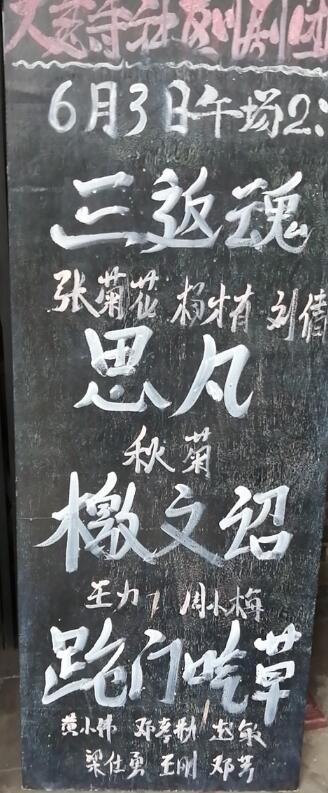 大慈寺社区川剧团
6月3日午场2:
三返魂
张菊花 杨才有 刘倩
思凡
秋菊
檄文诏
王力 周小梅
跑门吃草
黄小伟 邓彦勋 赵敏
梁仕勇 王刚 邓芳